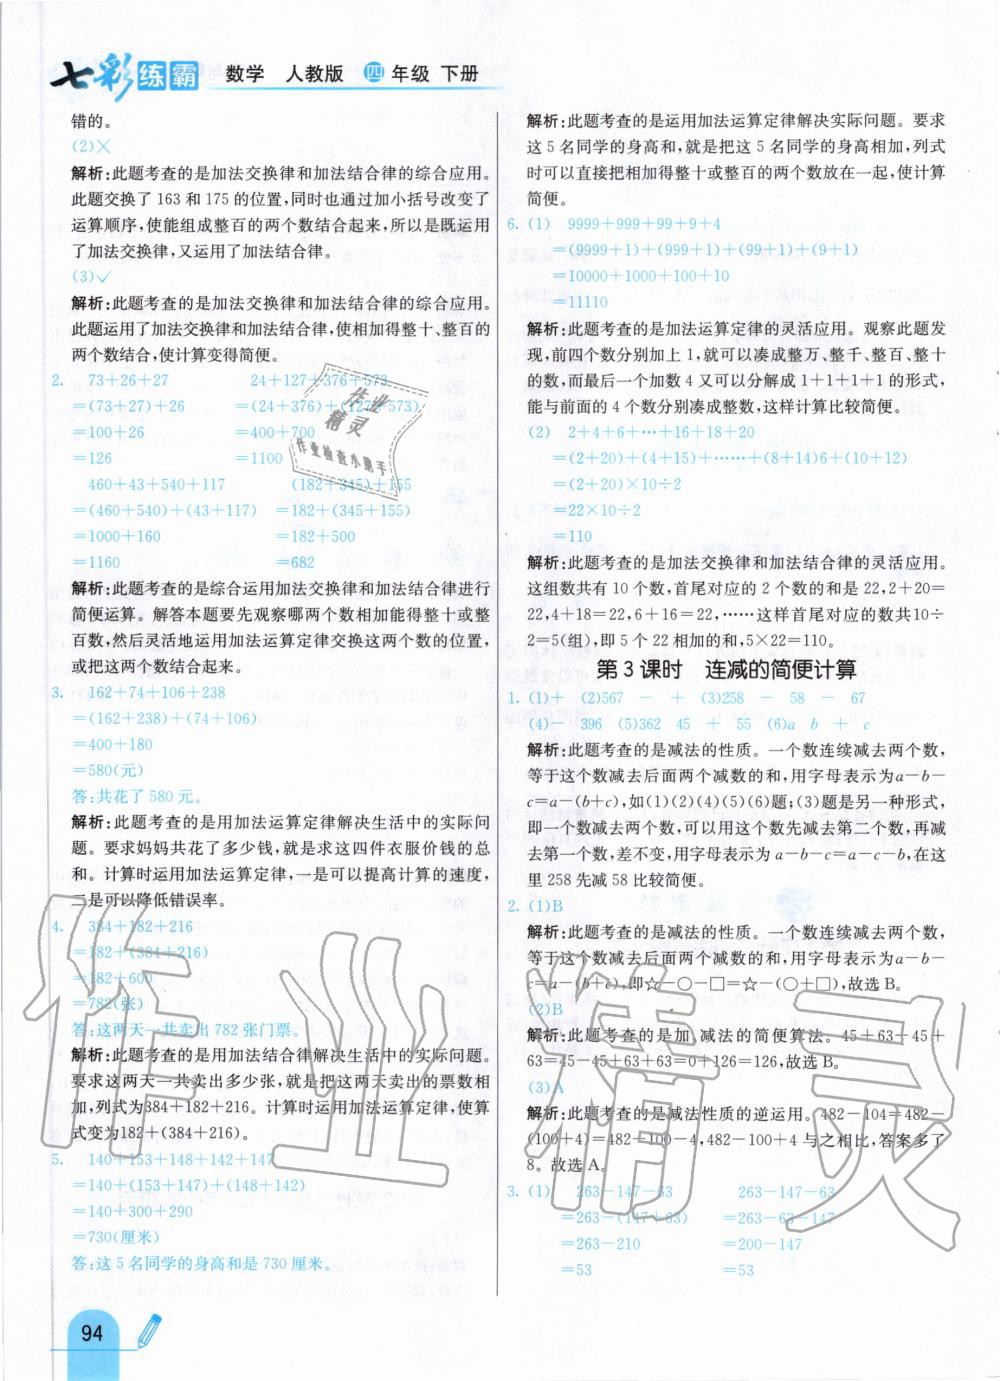 七彩练霸 数学 人教版 四年级 下册
错的。
(2)×
解析:此题考查的是加法交换律和加法结合律的综合应用。
此题交换了 163 和 175 的位置,同时也通过加小括号改变了
运算顺序,使能组成整百的两个数结合起来,所以是既运用
了加法交换律,又运用了加法结合律。
(3)✓
解析:此题考查的是加法交换律和加法结合律的综合应用。
此题运用了加法交换律和加法结合律,使相加得整十、整百的
两个数结合,使计算变得简便。
2. 73+26+27 24+127+376+573
=(73+27)+26 =(24+376)+(127+573)
=100+26 =400+700
=126 =1100
460+43+540+117 (182+345)+155
=(460+540)+(43+117) =182+(345+155)
=1000+160 =182+500
=1160 =682
解析:此题考查的是综合运用加法交换律和加法结合律进行
简便运算。解答本题要先观察哪两个数相加能得整十或整
百数,然后灵活地运用加法运算定律交换这两个数的位置,
或把这两个数结合起来。
3. 162+74+106+238
=(162+238)+(74+106)
=400+180
=580(元)
答:共花了 580 元。
解析:此题考查的是用加法运算定律解决生活中的实际问
题。要求妈妈共花了多少钱,就是求这四件衣服价钱的总
和。计算时运用加法运算定律,一是可以提高计算的速度,
二是可以降低错误率。
4. 384+182+216
=182+(384+216)
=182+600
=782(张)
答:这两天一共卖出 782 张门票。
解析:此题考查的是用加法结合律解决生活中的实际问题。
要求这两天一共卖出多少张,就是把这两天卖出的票数相
加,列式为384+182+216。计算时运用加法运算定律,使算
式变为182+(384+216)。
5. 140+153+148+142+147
=140+(153+147)+(148+142)
=140+300+290
=730(厘米)
答:这 5 名同学的身高和是 730 厘米。
94
解析:此题考查的是运用加法运算定律解决实际问题。要求
这 5 名同学的身高和,就是把这 5 名同学的身高相加,列式
时可以直接把相加得整十或整百的两个数放在一起,使计算
简便。
6. (1) 9999+999+99+9+4
=(9999+1)+(999+1)+(99+1)+(9+1)
=10000+1000+100+10
=11110
解析:此题考查的是加法运算定律的灵活应用。观察此题发
现,前四个数分别加上 1,就可以凑成整万、整千、整百、整十
的数,而最后一个加数 4 又可以分解成 1+1+1+1 的形式,
能与前面的 4 个数分别凑成整数,这样计算比较简便。
(2) 2+4+6+…+16+18+20
=(2+20)+(4+15)+……+(8+14)6+(10+12)
=(2+20)×10÷2
=22×10÷2
=110
解析:此题考查的是加法交换律和加法结合律的灵活应用。
这组数共有 10 个数,首尾对应的 2 个数的和是 22,2+20=
22,4+18=22,6+16=22,……这样首尾对应的数共10÷
2=5(组),即 5 个 22 相加的和,5×22=110。
第 3 课时 连减的简便计算
1. (1)+ (2)567 − + (3)258 − 58 − 67
(4)− 396 (5)362 45 + 55 (6)a b + c
解析:此题考查的是减法的性质。一个数连续减去两个数,
等于这个数减去后面两个减数的和,用字母表示为a−b−
c=a−(b+c),如(1)(2)(4)(5)(6)题;(3)题是另一种形式,
即一个数减去两个数,可以用这个数先减去第二个数,再减
去第一个数,差不变,用字母表示为 a−b−c=a−c−b,在这
里 258 先减 58 比较简便。
2. (1)B
解析:此题考查的是减法的性质。一个数连续减去两个数,
等于这个数减去后面两个减数的和,用字母表示为a−b−
c=a−(b+c),即☆−○−□=☆−(○+□),故选 B。
(2)B
解析:此题考查的是加、减法的简便算法。45+63−45+
63=45−45+63+63=0+126=126,故选 B。
(3)A
解析:此题考查的是减法性质的逆运用。482−104=482−
(100+4)=482−100−4,482−100+4 与之相比,答案多了
8。故选 A。
3. (1) 263−147−63 263−147−63
=263−(147+63) =263−63−147
=263−210 =200−147
=53 =53
作业精灵
作业检查小助手
作业精灵